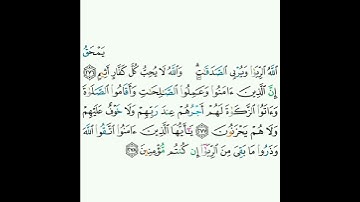 يَمْحَقُ
ٱللَّهُ ٱلرِّبَوٰا۟ وَيُرْبِى ٱلصَّدَقَـٰتِ ۗ وَٱللَّهُ لَا يُحِبُّ كُلَّ كَفَّارٍ أَثِيمٍ ﴿٢٧٦﴾
إِنَّ ٱلَّذِينَ ءَامَنُوا۟ وَعَمِلُوا۟ ٱلصَّـٰلِحَـٰتِ وَأَقَامُوا۟ ٱلصَّلَوٰةَ
وَءَاتَوُا۟ ٱلزَّكَوٰةَ لَهُمْ أَجْرُهُمْ عِندَ رَبِّهِمْ وَلَا خَوْفٌ عَلَيْهِمْ
وَلَا هُمْ يَحْزَنُونَ ﴿٢٧٧﴾ يَـٰٓأَيُّهَا ٱلَّذِينَ ءَامَنُوا۟ ٱتَّقُوا۟ ٱللَّهَ
وَذَرُوا۟ مَا بَقِىَ مِنَ ٱلرِّبَوٰٓا۟ إِن كُنتُم مُّؤْمِنِينَ ﴿٢٧٨﴾